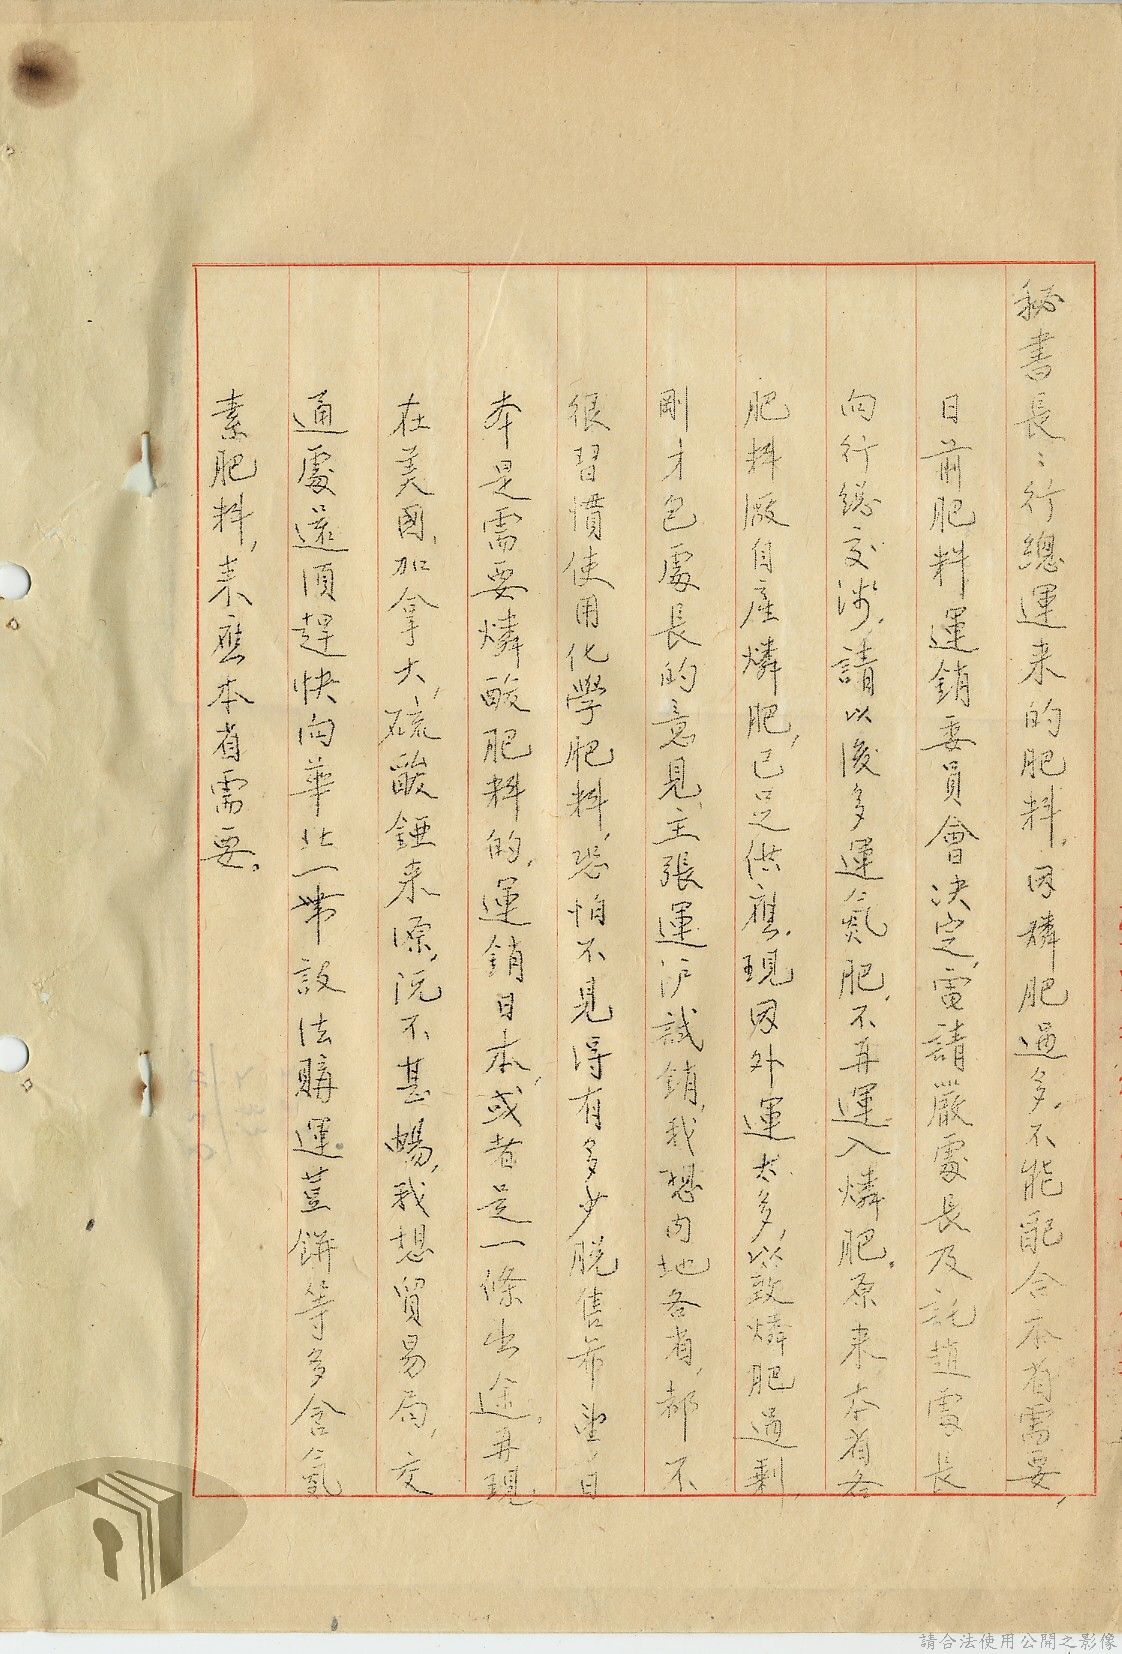 秘書長:行總運来的肥料,因磷肥過多,不能配合本省需要,
日前肥料運銷委員會决定,電請嚴處長及託趙處長
向行總交涉,請以後多運氮肥,不再運入燐肥。原来本省各
肥料廠自產燐肥,已足供應,現因外運太多,以致燐肥過剩,
剛才包處長的意見,主張運沪試銷,我恐内地各省,都不
很習慣使用化學肥料,恐怕不見得有多少脱售希望,日
本是需要燐酸肥料的,運銷日本,或者是一條出途,再現
在美國,加拿大,硫酸錏来源,況不甚暢,我想貿易局,交
通處還須趕快向華北一帶設法購運荳餅等多含氮
素肥料,来應本省需要。
請合法使用公開之影像